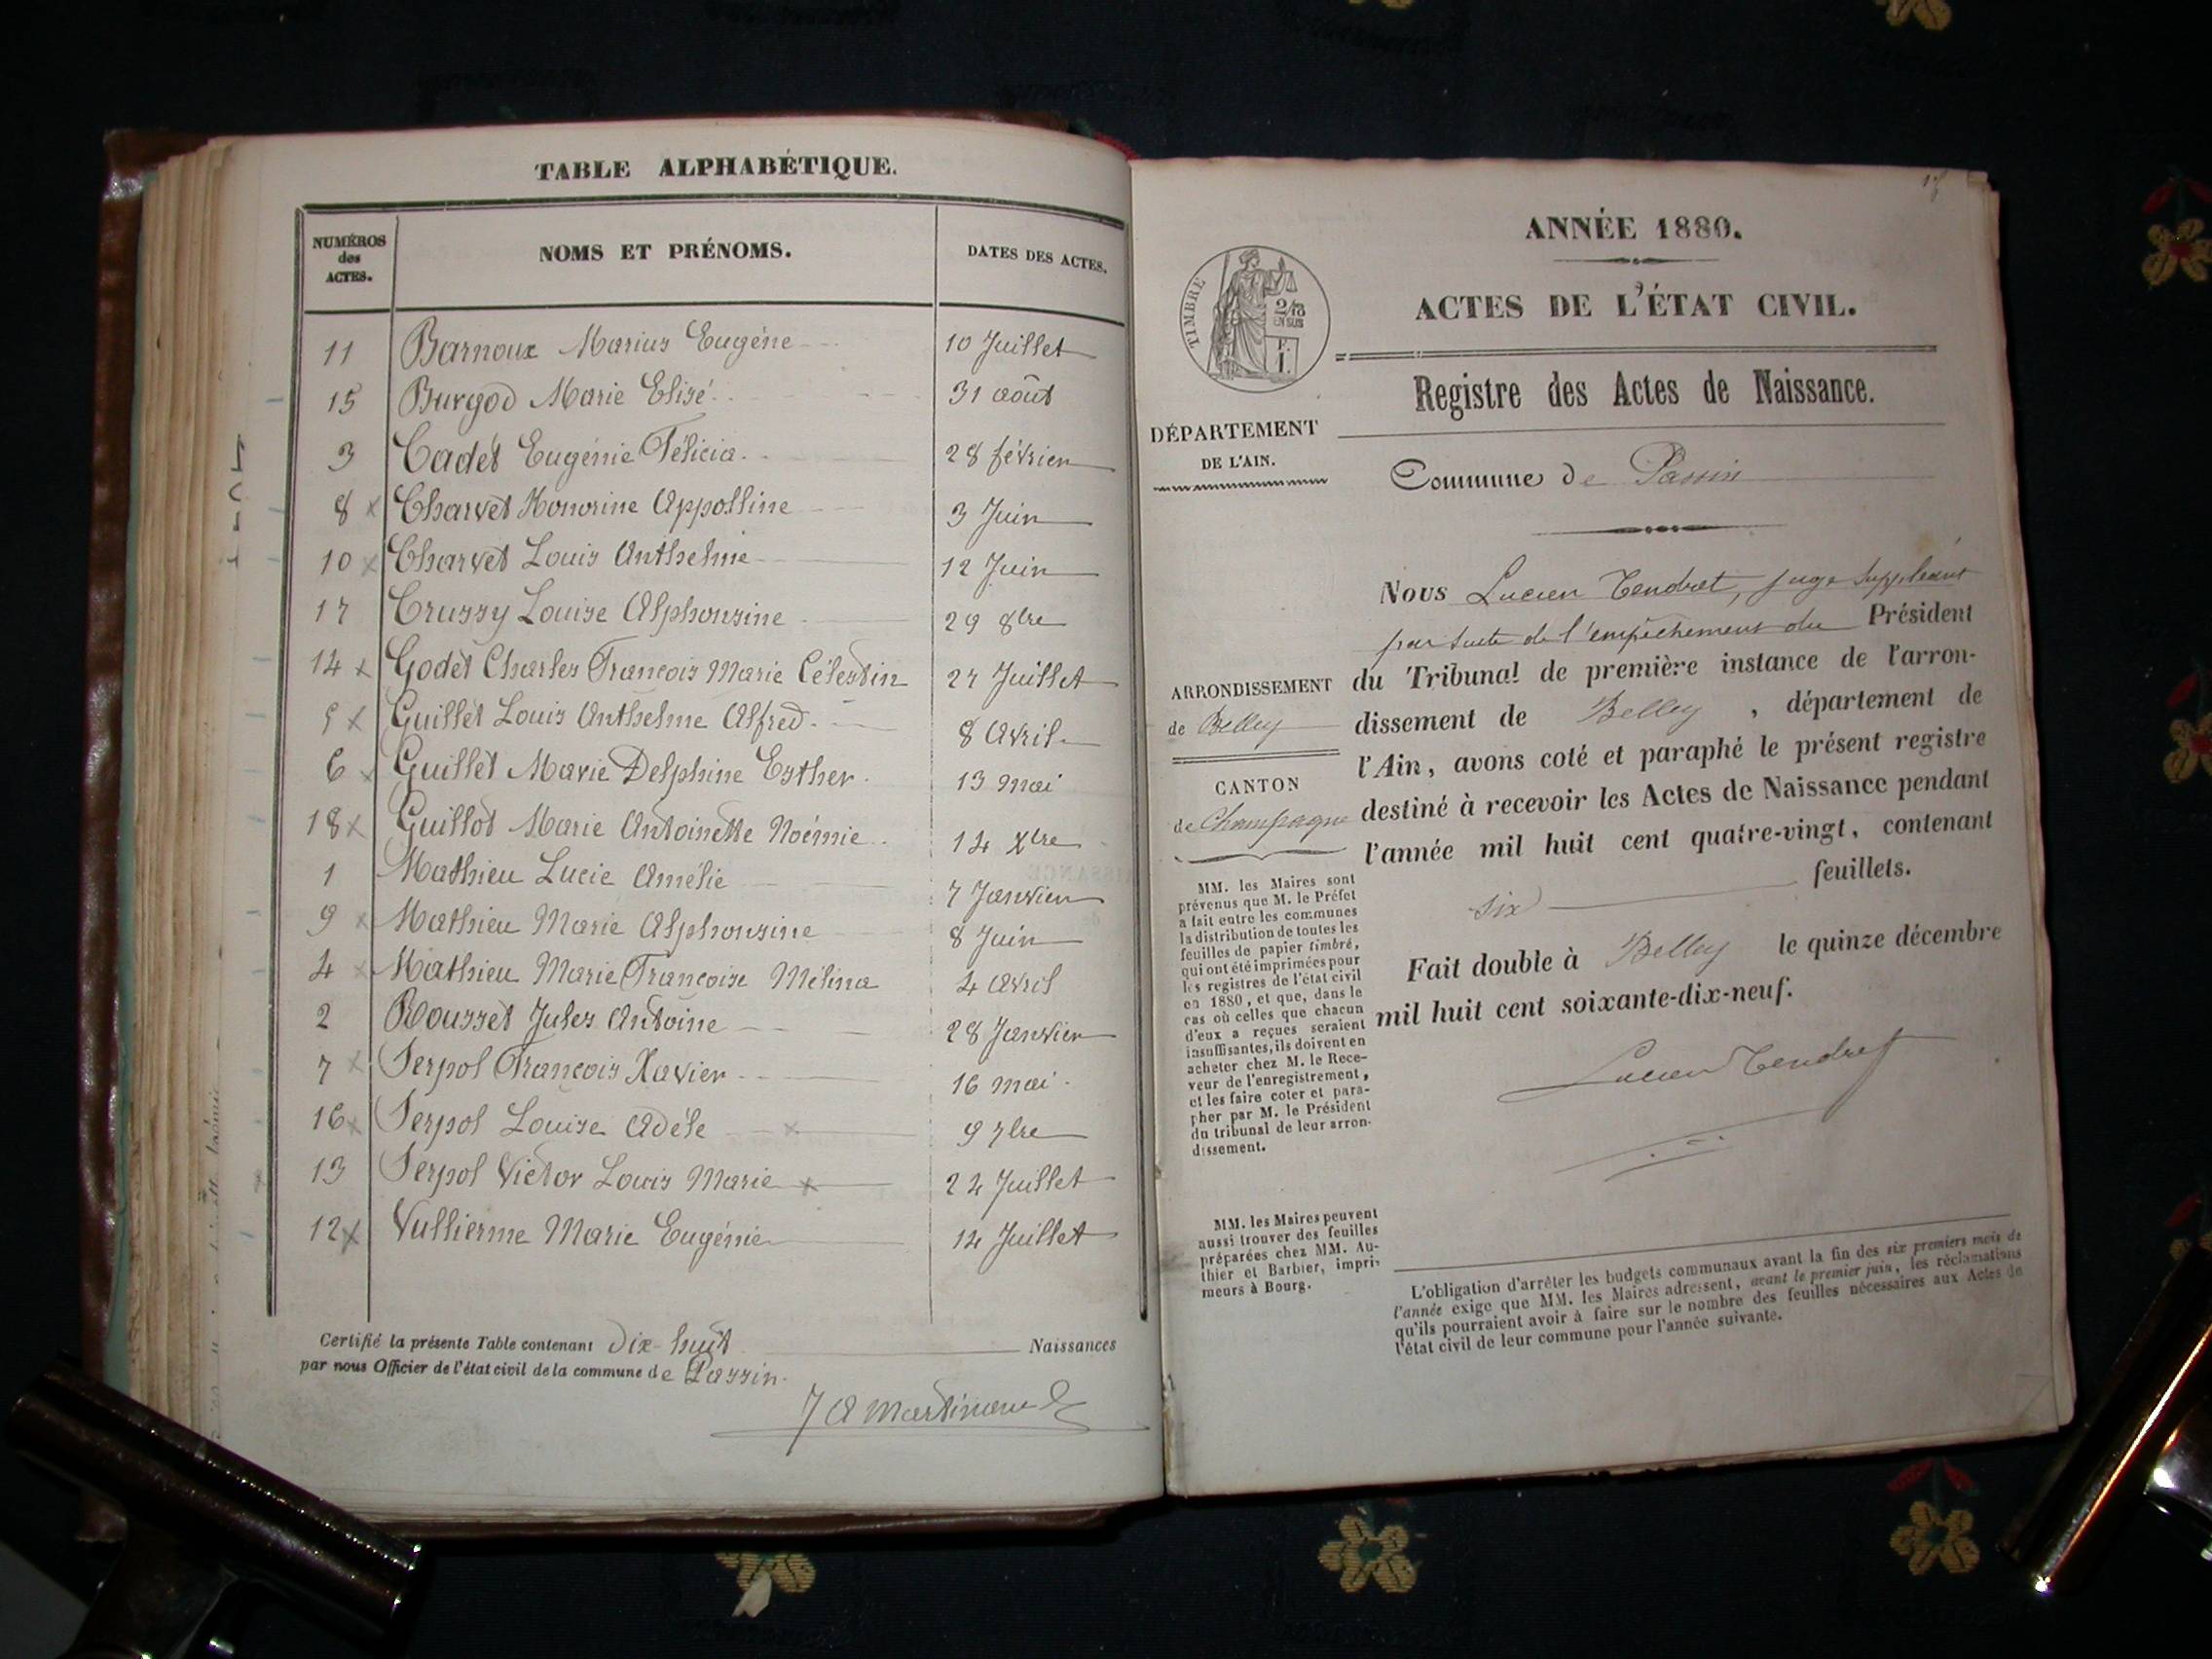 TABLE ALPHABÉTIQUE.
NUMÉROS des ACTES. NOMS ET PRÉNOMS. DATES DES ACTES.
11 Barnoux Marius Eugéne 10 Juillet
15 Burgod Marie Elisé 31 août
3 Cadet Eugénie Félicia. 28 février
8 x Charvet Honorine Appolline 3 Juin
10 x Charvet Louis Anthelme 12 Juin
17 Crussy Louise Alphonsine 29 8bre
14 x Godet Charles François Marie Célestin 27 Juillet
5 x Guillet Louis Anthelme Alfred. 8 Avril
6 x Guillet Marie Delphine Esther. 13 mai
18 x Guillot Marie Antoinette Noémie 14 Xbre
1 Mathieu Lucie Amélie 7 Janvier
9 x Mathieu Marie Alphonsine 8 Juin
4 x Mathieu Marie Françoise Mélina 4 Avril
2 Rousset Jules Antoine 28 Janvier
7 x Serpol François Xavier 16 mai
16 x Serpol Louise Adéle x 9 7bre
13 Serpol Victor Louis Marie x 22 Juillet
12 x Vullierme Marie Eugénie 14 Juillet
Certifié la présente Table contenant dix-huit Naissances
par nous Officier de l'état civil de la commune de Passin.
Martinand
ANNÉE 1880.
ACTES DE L'ÉTAT CIVIL.
TIMBRE
2/10
EN SUS
F.
1.
Registre des Actes de Naissance.
DÉPARTEMENT
DE L'AIN.
Commune de Passin
Nous Lucien Tendret, juge suppléant
par suite de l'empêchement du Président
du Tribunal de première instance de l'arron-
dissement de Belley, département de
l'Ain, avons coté et paraphé le présent registre
destiné à recevoir les Actes de Naissance pendant
l'année mil huit cent quatre-vingt, contenant
six feuillets.
Fait double à Belley le quinze décembre
mil huit cent soixante-dix-neuf.
Lucien Tendret
ARRONDISSEMENT
de Belley
CANTON
de Champagne
MM. les Maires sont
prévenus que M. le Préfet
a fait entre les communes
la distribution de toutes les
feuilles de papier timbré,
qui ont été imprimées pour
les registres de l'état civil
en 1880, et que, dans le
cas où celles que chacun
d'eux a reçues seraient
insuffisantes, ils doivent en
acheter chez M. le Rece-
veur de l'enregistrement,
et les faire coter et para-
pher par M. le Président
du tribunal de leur arron-
dissement.
MM. les Maires peuvent
aussi trouver des feuilles
préparées chez MM. Au-
thier et Barbier, impri-
meurs à Bourg.
L'obligation d'arrêter les budgets communaux avant la fin des six premiers mois de
l'année exige que MM. les Maires adressent, avant le premier juin, les réclamations
qu'ils pourraient avoir à faire sur le nombre des feuilles nécessaires aux Actes de
l'état civil de leur commune pour l'année suivante.